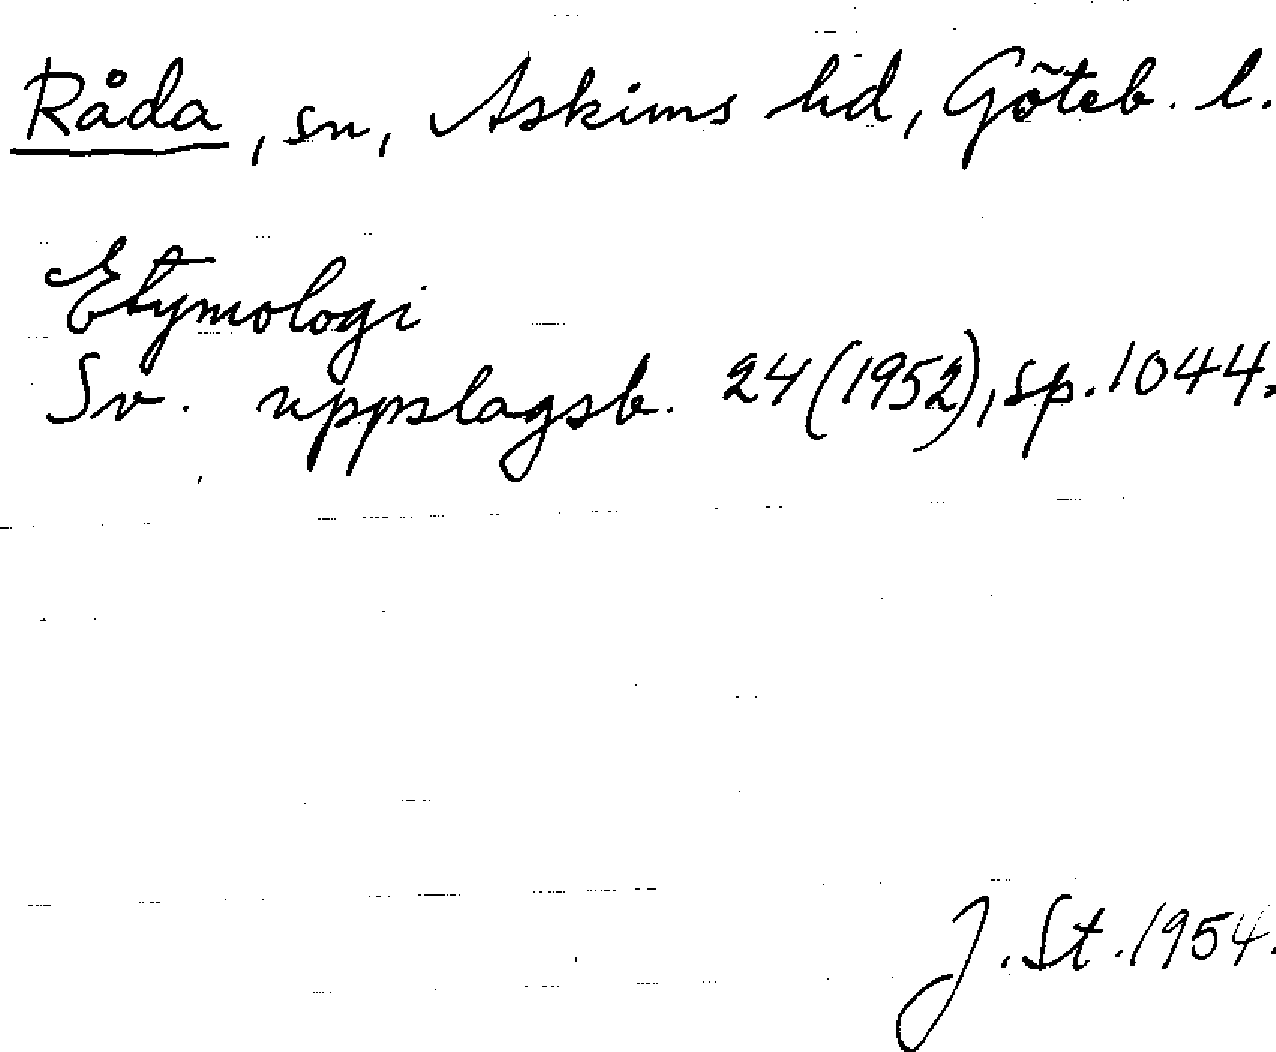 Råda, sn, Askims hd, Göteb. l.
Etymologi
Sv. uppslagsb. 24 (1952), sp. 1044.
J. St. 1954.